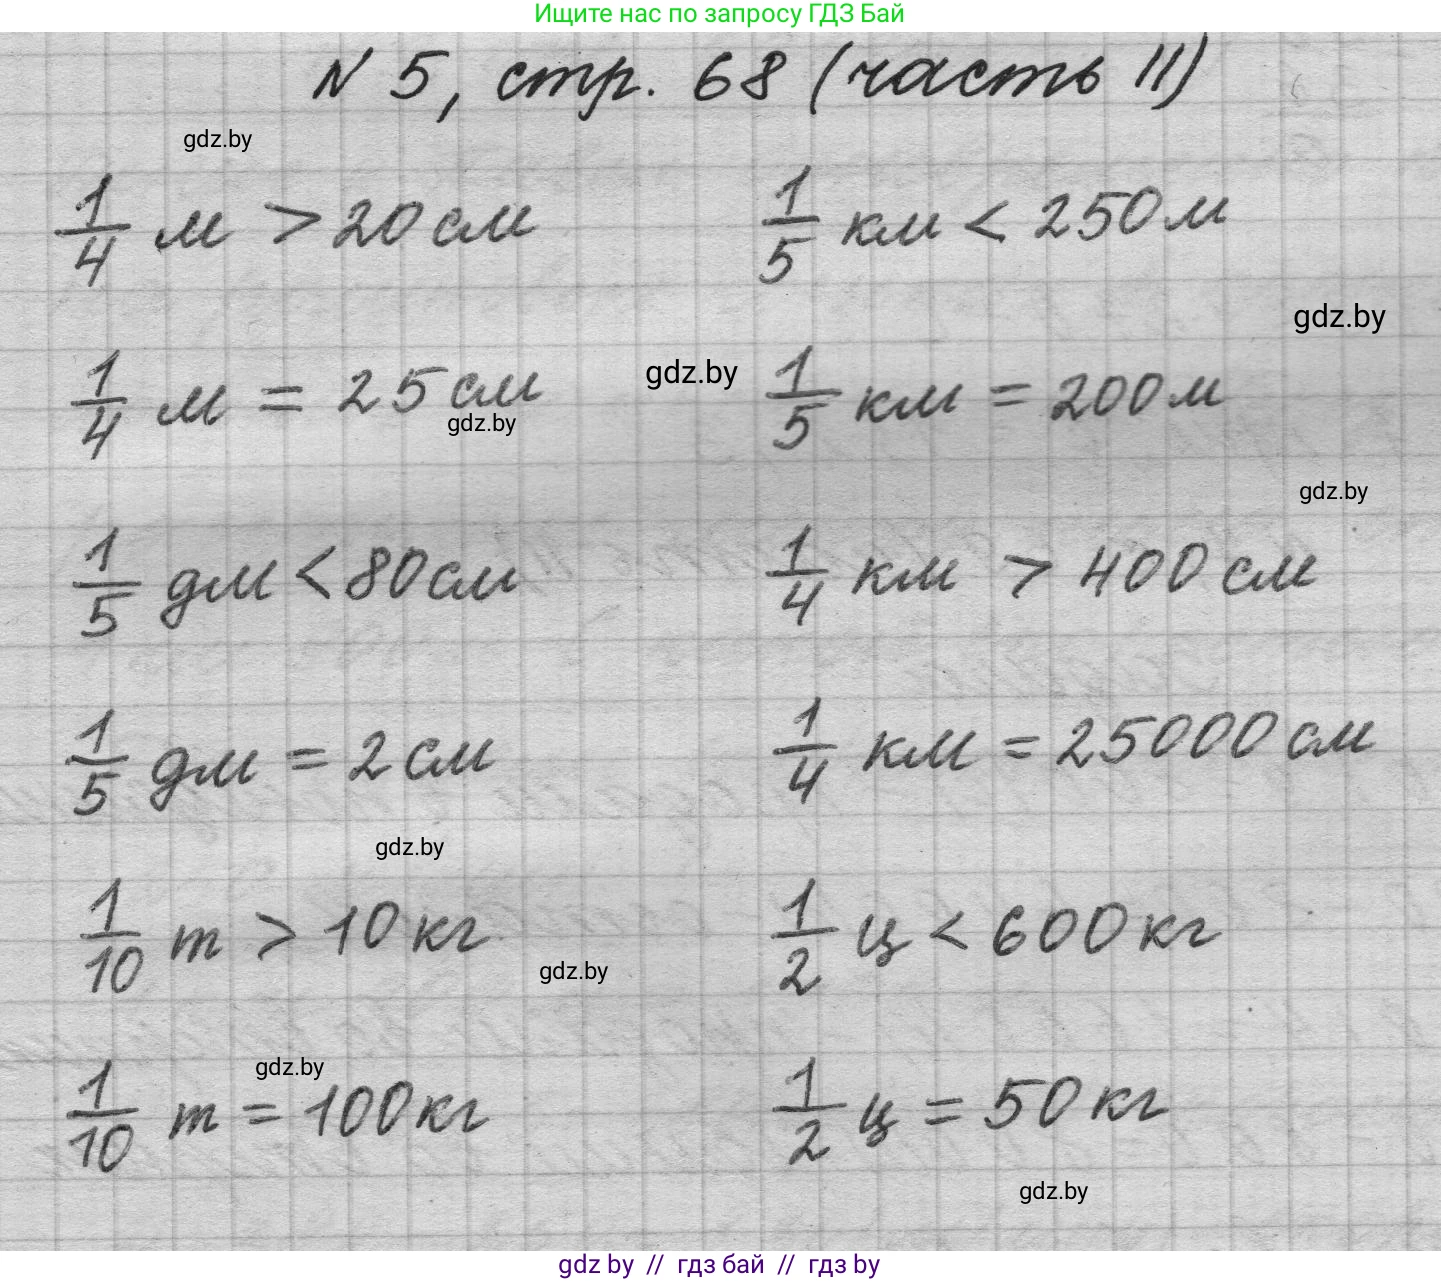 Ищите нас по запросу ГДЗ Бай
N 5, стр. 68 (часть II)
gdz.by
1/4 м > 20 см 1/5 км < 250 м
gdz.by
1/4 м = 25 см gdz.by 1/5 км = 200 м
gdz.by
gdz.by
1/5 дм < 80 см 1/4 км > 400 см
1/5 дм = 2 см 1/4 км = 25000 см
gdz.by
1/10 т > 10 кг 1/2 ц < 600 кг
gdz.by
gdz.by
1/10 т = 100 кг 1/2 ц = 50 кг
gdz.by
gdz by // гдз бай // гдз by